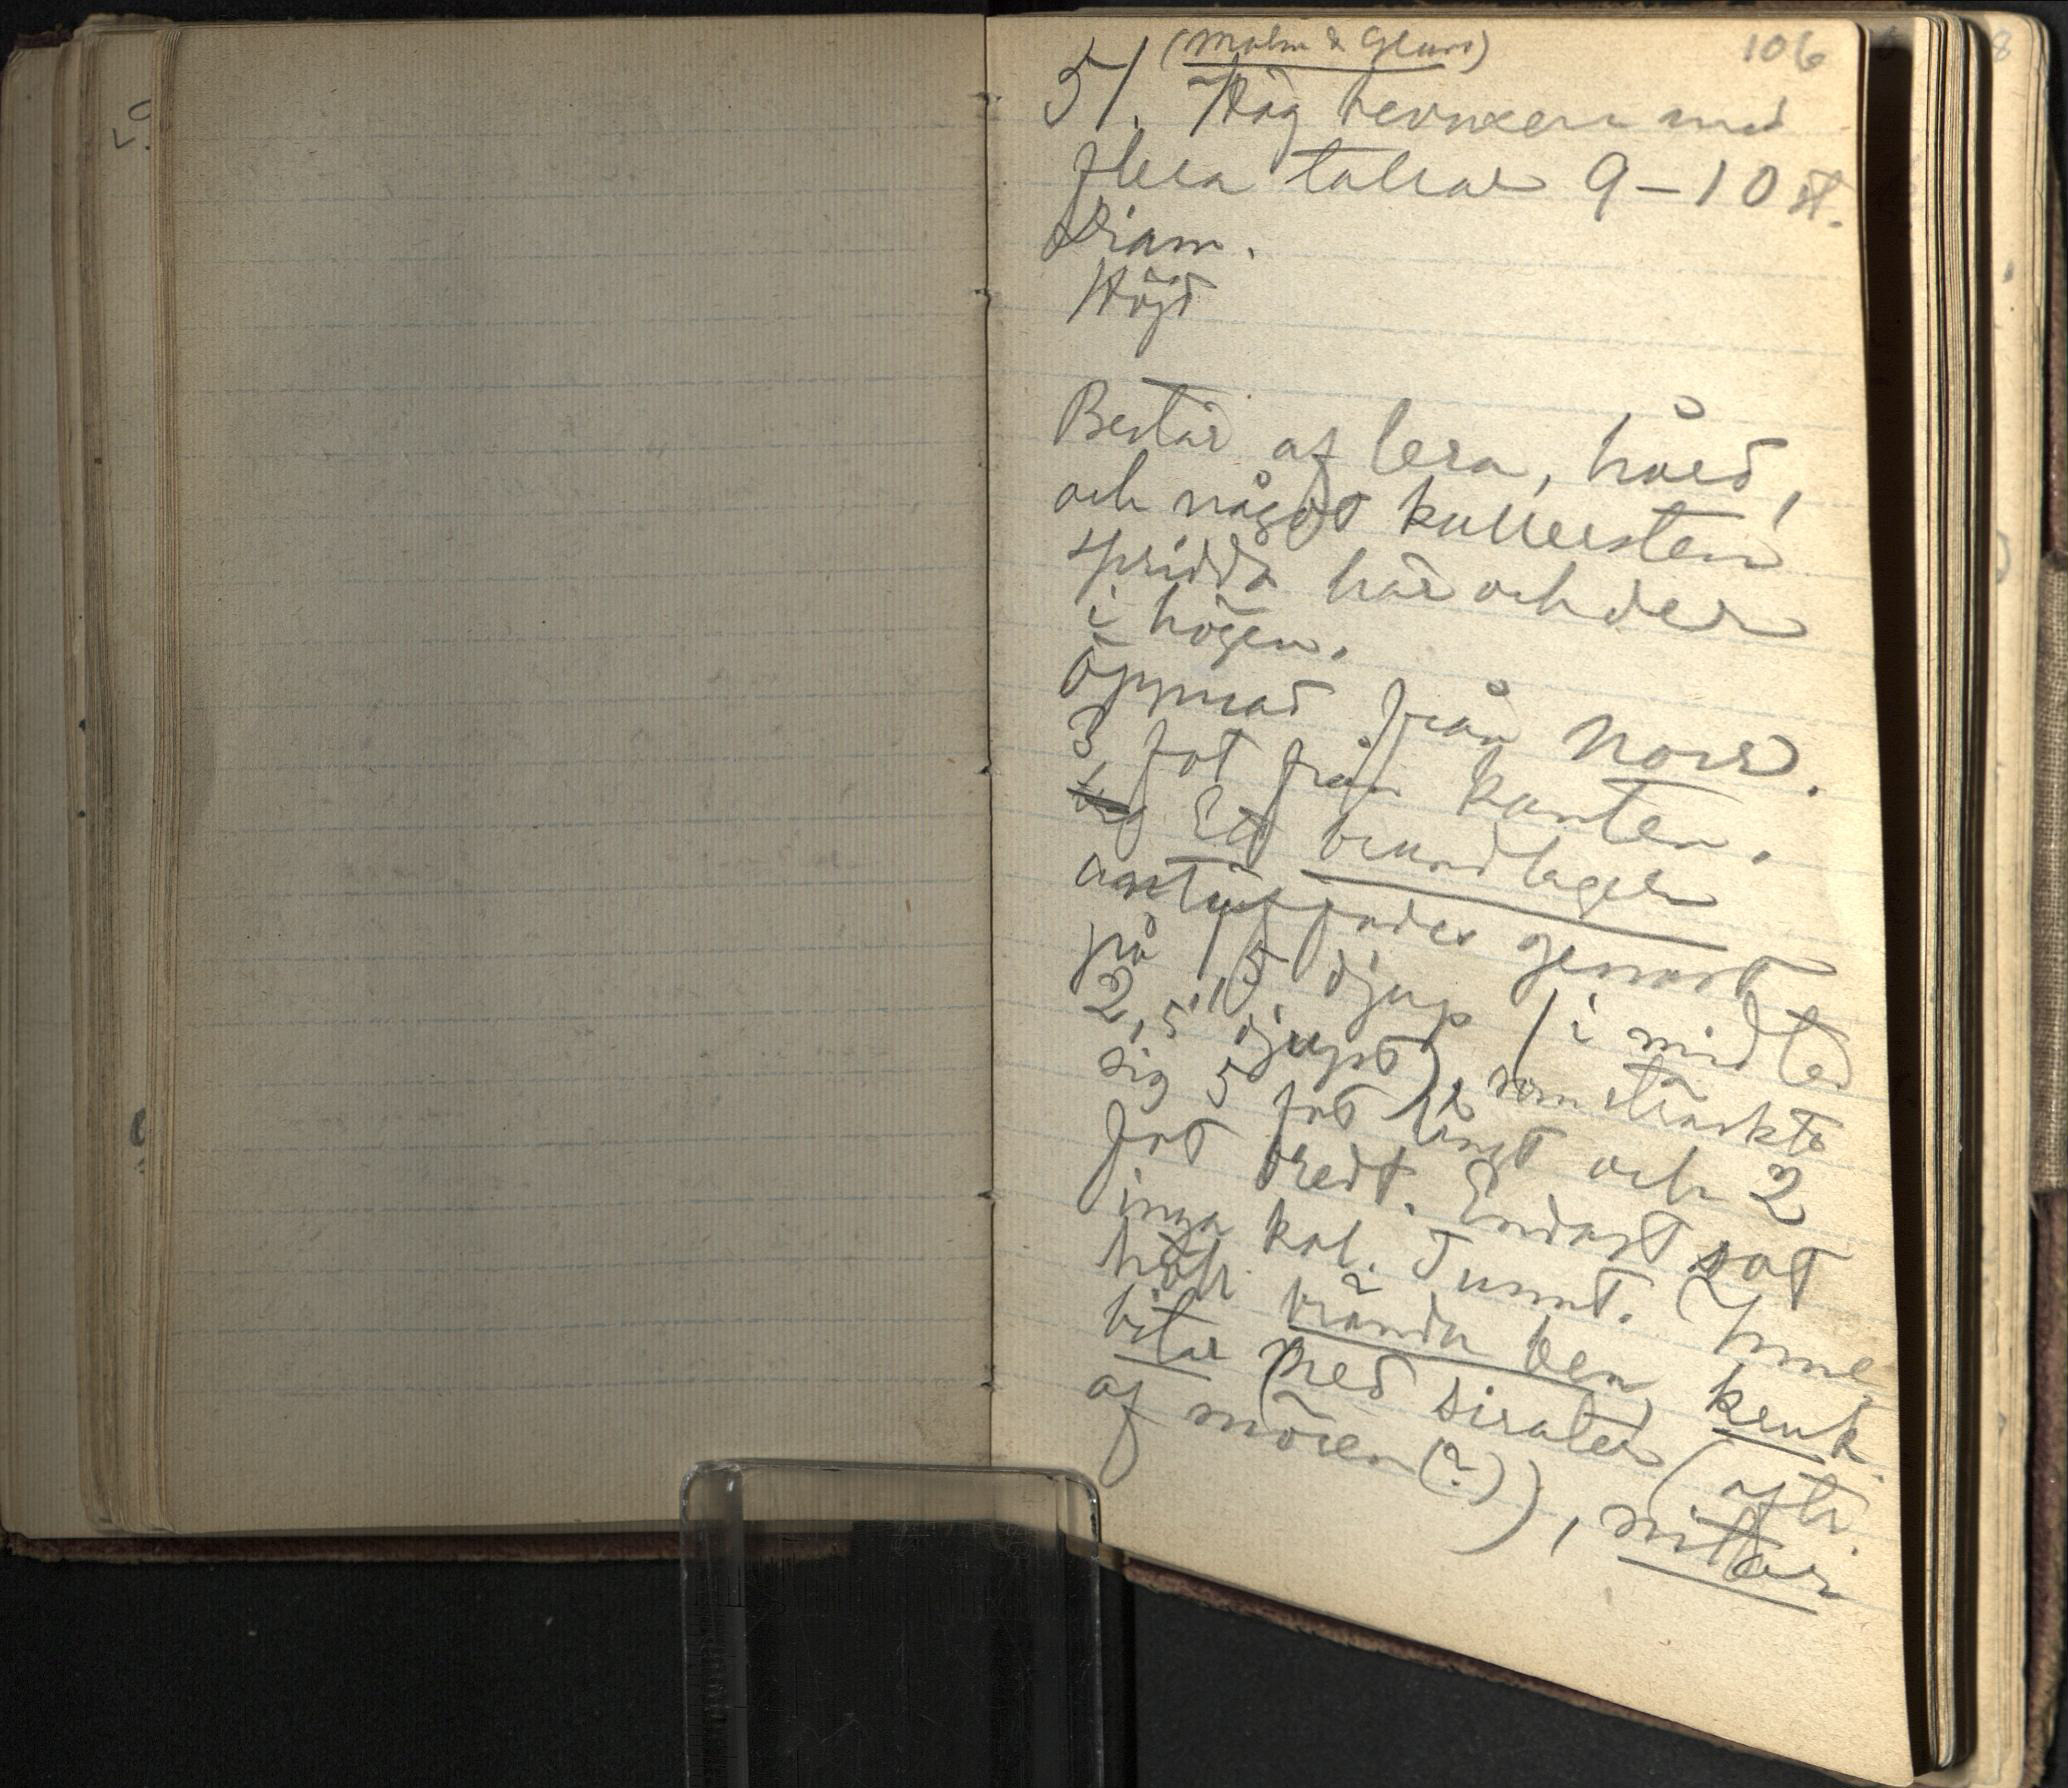 106
(Malm &
51. Hög bevuxen med
flera tallar 9–10 st.
Diam.
Höjd
Bestär af lera, hård,
och något kullersten
spridda här och der
i högen.
Öppnad från Norr.
3 fot från kanten.
Ett brandlager
anträffades genast
på 1,5 djup (i midten
2,5' djupt), som sträckte
sig 5 fot långt och 2
fot bredt. Endast sot
inga kol. Tunnt. Inne-
höll brända ben, kruk-
bitar med sirater (aftr.
af snören (?)), nitar